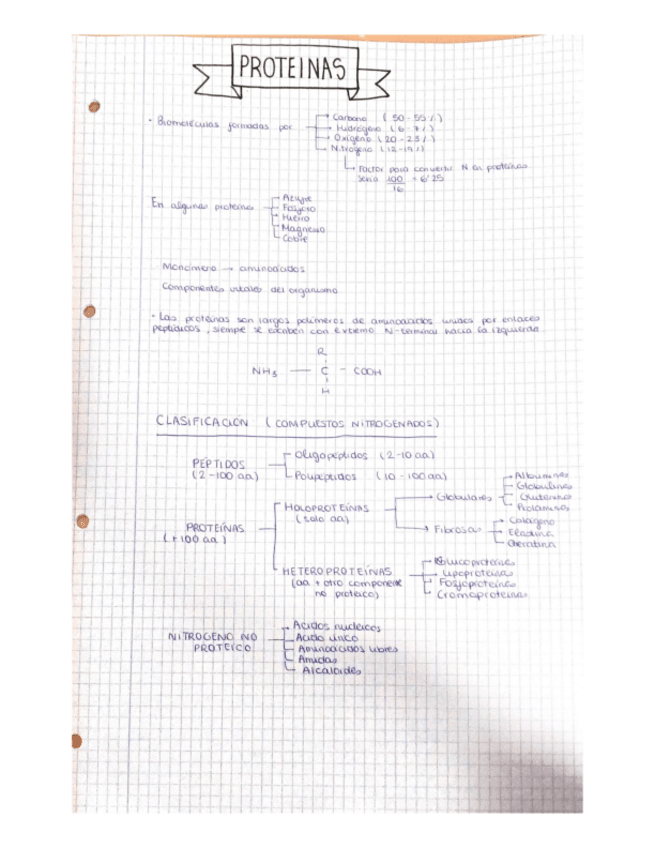 PROTEINAS
• Biomoléculas formadas por
Carbono (50-55%)
Hidrógeno (6-7%)
Oxígeno (20-23%)
Nitrógeno (12-19%)
Factor para convertir N en proteínas
sería 100/16 = 6'25
En algunas proteínas
Azufre
Fosforo
Hierro
Magnesio
Cobre
Monómero → aminoácidos
Componentes vitales del organismo
• Las proteínas son largos polímeros de aminoácidos unidos por enlaces
peptídicos, siempre se escriben con extremo N-terminal hacia la izquierda
R
NH₃ — C — COOH
H
CLASIFICACIÓN (COMPUESTOS NITROGENADOS)
PÉPTIDOS
(2-100 aa)
Oligopéptidos (2-10 aa)
Polipéptidos (10-100 aa)
PROTEÍNAS
(+100 aa)
HOLOPROTEÍNAS
(solo aa)
Globulares
Albuminas
Globulinas
Gluteninas
Prolaminas
Fibrosas
Colágeno
Elastina
Queratina
HETEROPROTEÍNAS
(aa + otro componente
no proteico)
Glucoproteínas
Lipoproteínas
Fosfoproteínas
Cromoproteínas
NITRÓGENO NO
PROTEICO
Acidos nucleicos
Acido úrico
Aminoácidos libres
Amidas
Alcaloides